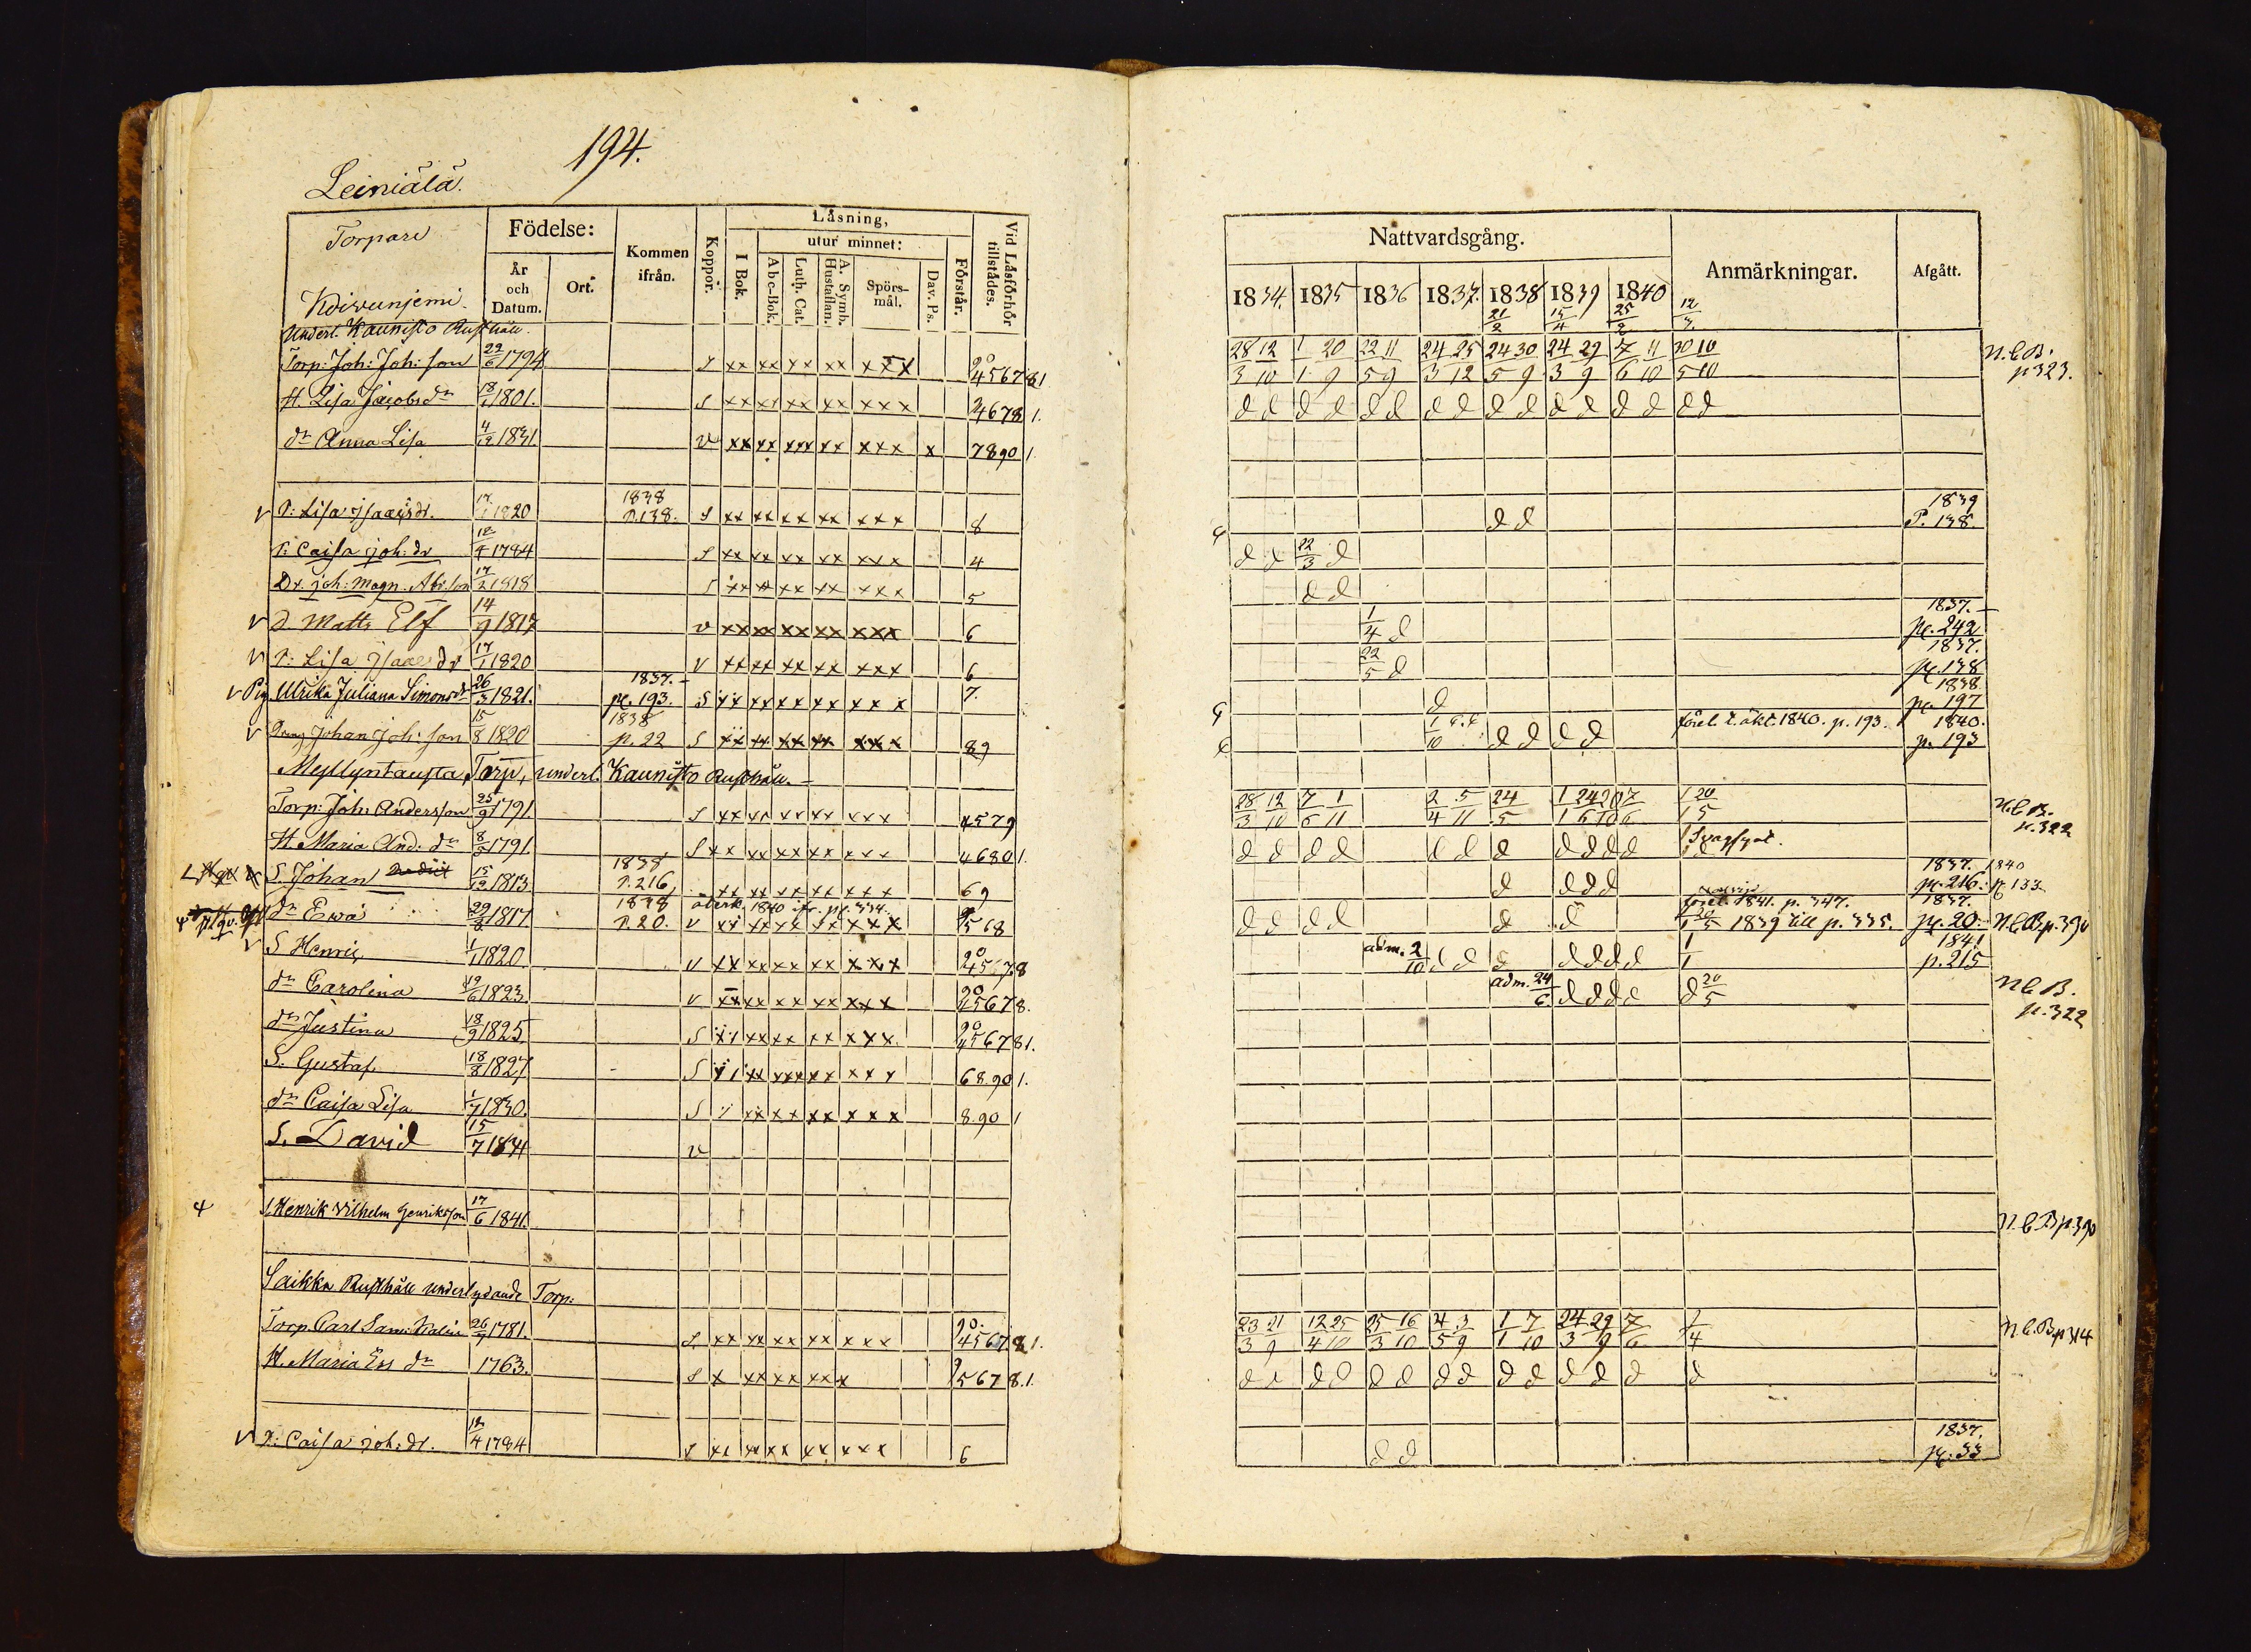 194.
Leiniälä.
Torpare
Födelse:
År och Datum.
Ort.
Kommen ifrån.
Koppor.
Läsning,
I Bok.
utur minnet:
Abc-Bok.
Luth. Cat.
A. Symb. Hustaflan.
Spörsmål.
Dav. Ps.
Förstår.
Vid Läsförhör tillstädes.
Koivunjemi.
Underl. Kaunisto Rusthåll.
Torp: Joh: Joh: son 29/6 1794 s xx xx xx xx xxx 20 4567 81
H. Lisa Jacobs dr 18/1 1801. s xx xx xx xx xxx 4678 1.
dr Anna Lisa 4/12 1831 v xx xx xxx xx xxx x 7890 1
P: Lisa Isaacs dr. 17/1 1820 1838 p.138. s xx xx xx xx xxx 8
P: Caisa Joh: dr 12/4 1784 s xx xx xx xx xxx 4
Dr. Joh: Magn. Abr: son 17/2 1818 s xx xx xx xx xxx 5
D. Matts Elf 14/9 1817 v xx xx xx xx xxx 6
P: Lisa Isaacs dr 17/1 1820 v xx xx xx xx xxx 6
Pig. Ulrika Juliana Simonsdr 26/3 1821. 1837. pg. 193. s xx xx xx xx xxx 7.
Dreng Johan Joh: son 15/8 1820 1838 p. 22 s xx xx xx xx xxx 89
Myllyntausta, Torp, underl. Kaunisto Rusthåll.
Torp: Joh: Andersson 25/9 1791. s xx xx xx xx xxx 4579
H. Maria And: dr 8/3 1791. s xx xx xx xx xxx 4680 1.
S. Johan 15/12 1813 1838 p. 216, xx xx xx xx xxx 69
dr Ewa 29/8 1817 1838 p. 20. återk. 1840 ifr. pg. 334. v xx xx xx xx xxx 568
S Henric 1/1 1820 v xx xx xx xx xxx 20 45678
dr Carolina 19/6 1823 v xx xx xx xx xxx 5678.
dr Justina 18/9 1825 s xx xx xx xx xxx 20 45678 1.
S. Gustaf. 18/8 1827 s xx xx xxx xx xxx 6890 1.
dr Caisa Lisa 1/7 1830. s x xx xx xx xxx 8.90 1
S. David 15/7 1834 v
S. Henrik Vilhelm Henriksson 17/6 1841.
Saikka Rusthåll underlydande Torp:
Torp. Carl Sam: 26/9 1781. s xx xx xx xx xxx 20. 4567 81.
H. Maria Ers dr 1763. s x xx xx xx x 567 8.1.
P: Caisa Joh: dr. 12/4 1784 s xx xx xx xx xxx 6
Nattvardsgång.
Anmärkningar.
Afgått.
1834. 1835 1836 1837. 1838 1839 1840
21/2 15/4 25/2 12/3.
28/3 12/10 1/1 20/9 22/5 11/9 24/3 25/12 24/5 30/9 24/3 29/9 7/6 11/10 30/5 10/10 N.C.B. p 323.
d d d d d d d d d d d d d d d d
d d 1839 P. 138.
d d 22/3 d
d d
1/4 d 1837. pg. 242
22/5 d 1837. pg. 138
d 1838 pg. 197
1/10 d d d d förel. t. äkt. 1840. p. 193. 1840. p. 193
28/3 12/10 7/6 1/11 2/4 5/11 24/5 1/1 24/6 20/10 7/6 1/1 20/5 N.C.B. p. 322
d d d d d d d d d d d Svagsynt.
d d d d 1837. pg. 216. 1840 p 133
d d d d d d förel. 1841. p. 347. 1839 till p. 335. 1837. pg. 20. N.C.B. p. 390
adm. 2/10 d d d d d d d 1/1 1841 p. 215
adm. 24/6 d d d d d 20/5 N.C.B. p. 322
N.C.B p. 390
23/3 21/9 12/4 25/10 25/3 16/10 4/5 3/9 1/1 7/10 24/3 29/9 7/6 1/4 N.C.B. p 314
d d d d d d d d d d d d d d
d d 1837. pg. 33